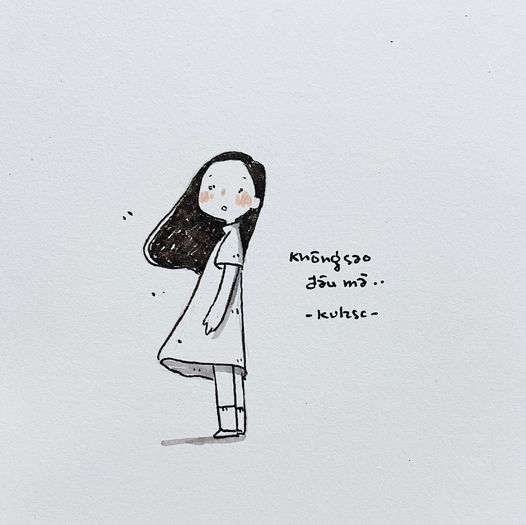 không sao
đâu mà..
- kulzsc -